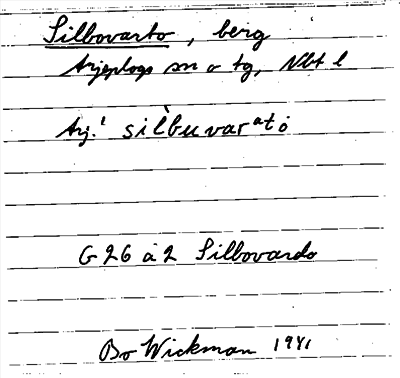 Silbovarto, berg
Arjeplogs sn o tg, Nbt l
Arj.' silbuvarato
G 26 a 2 Silbovardo
Bo Wickman 1941